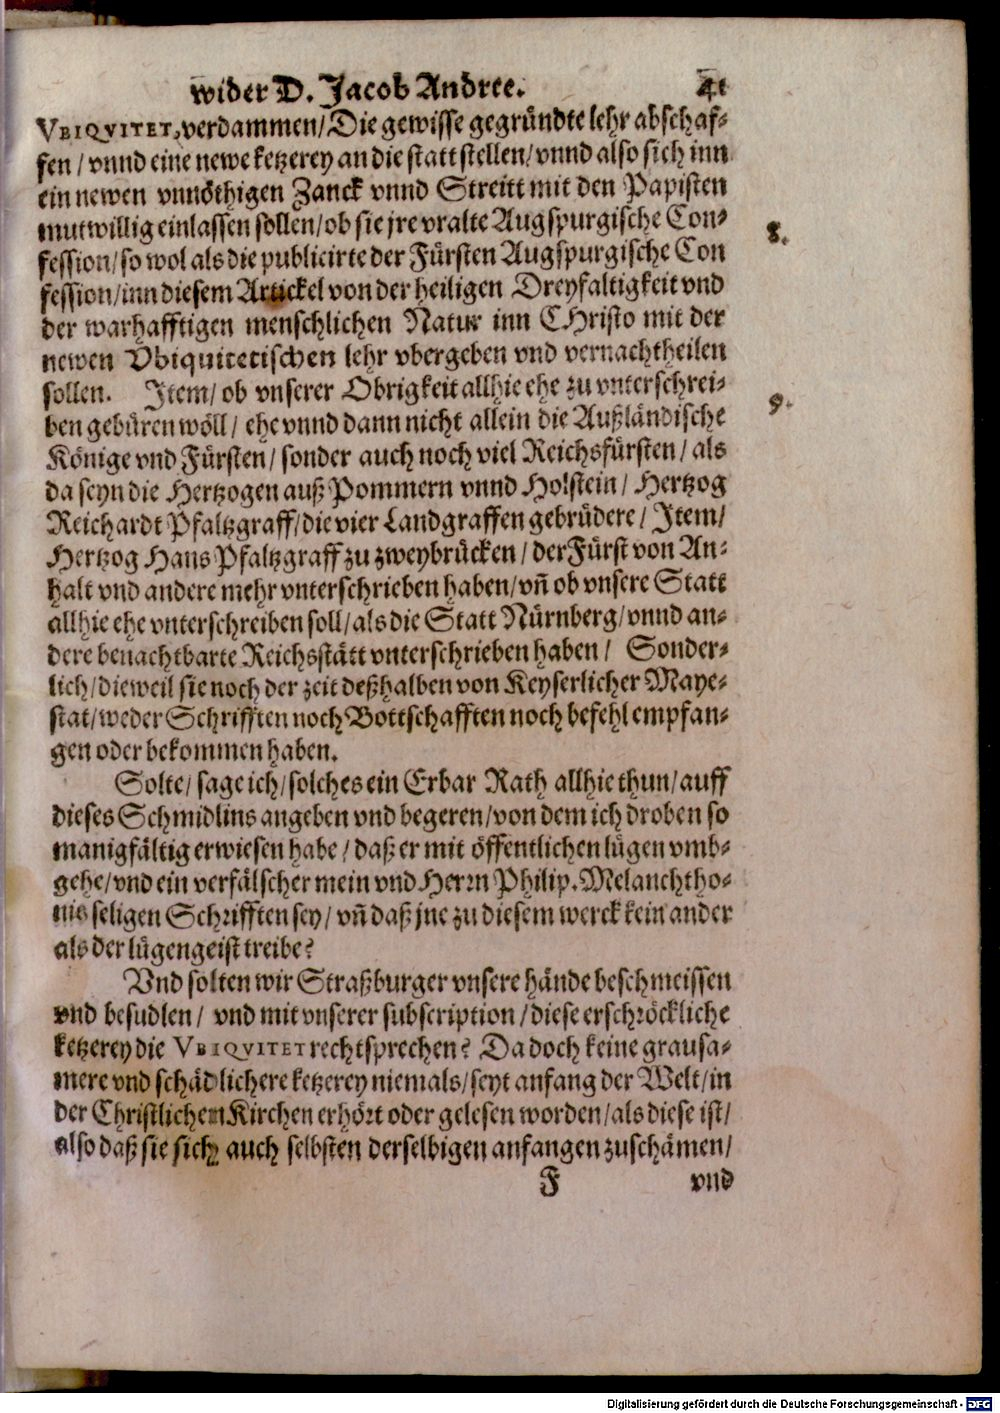 wider D. Jacob Andree. 41
VBIQVITET, verdammen/ Die gewisse gegründte lehr abschaf-
fen/ vnnd eine newe ketzerey an die statt stellen/ vnnd also sich inn
ein newen vnnöthigen Zanck vnnd Streitt mit den Papisten
mutwillig einlassen sollen/ ob sie jre vralte Augspurgische Con-
fession/ so wol als die publicirte der Fürsten Augspurgische Con
fession/ inn diesem Artickel von der heiligen Dreyfaltigkeit vnd
der warhafftigen menschlichen Natur inn CHristo mit der
newen Vbiquitetischen lehr vbergeben vnd vernachtheilen
sollen. Item/ ob vnserer Obrigkeit allhie ehe zu vnterschrei-
ben gebüren wöll/ ehe vnnd dann nicht allein die Außländische
Könige vnd Fürsten/ sonder auch noch viel Reichsfürsten/ als
da seyn die Hertzogen auß Pommern vnnd Holstein/ Hertzog
Reichardt Pfaltzgraff/ die vier Landgraffen gebrüdere/ Item/
Hertzog Hans Pfaltzgraff zu zweybrücken/ der Fürst von An-
halt vnd andere mehr vnterschrieben haben/ vñ ob vnsere Statt
allhie ehe vnterschreiben soll/ als die Statt Nürnberg/ vnnd an-
dere benachtbarte Reichsstätt vnterschrieben haben/ Sonder-
lich/ dieweil sie noch der zeit deßhalben von Keyserlicher Maye-
stat/ weder Schrifften noch Bottschafften noch befehl empfan-
gen oder bekommen haben.
Solte/ sage ich/ solches ein Erbar Rath allhie thun/ auff
dieses Schmidlins angeben vnd begeren/ von dem ich droben so
manigfältig erwiesen habe/ daß er mit öffentlichen lügen vmb-
gehe/ vnd ein verfälscher mein vnd Herrn Philip. Melanchtho-
nis seligen Schrifften sey/ vñ daß jne zu diesem werck kein ander
als der lügengeist treibe?
Vnd solten wir Straßburger vnsere hände beschmeissen
vnd besudlen/ vnd mit vnserer subscription/ diese erschröckliche
ketzerey die VBIQVITET recht sprechen? Da doch keine grausa-
mere vnd schädlichere ketzerey niemals/ seyt anfang der Welt/ in
der Christlichen Kirchen erhört oder gelesen worden/ als diese ist/
also daß sie sich auch selbsten derselbigen anfangen zuschämen/
F vnd
8.
9.
Digitalisierung gefördert durch die Deutsche Forschungsgemeinschaft - DFG